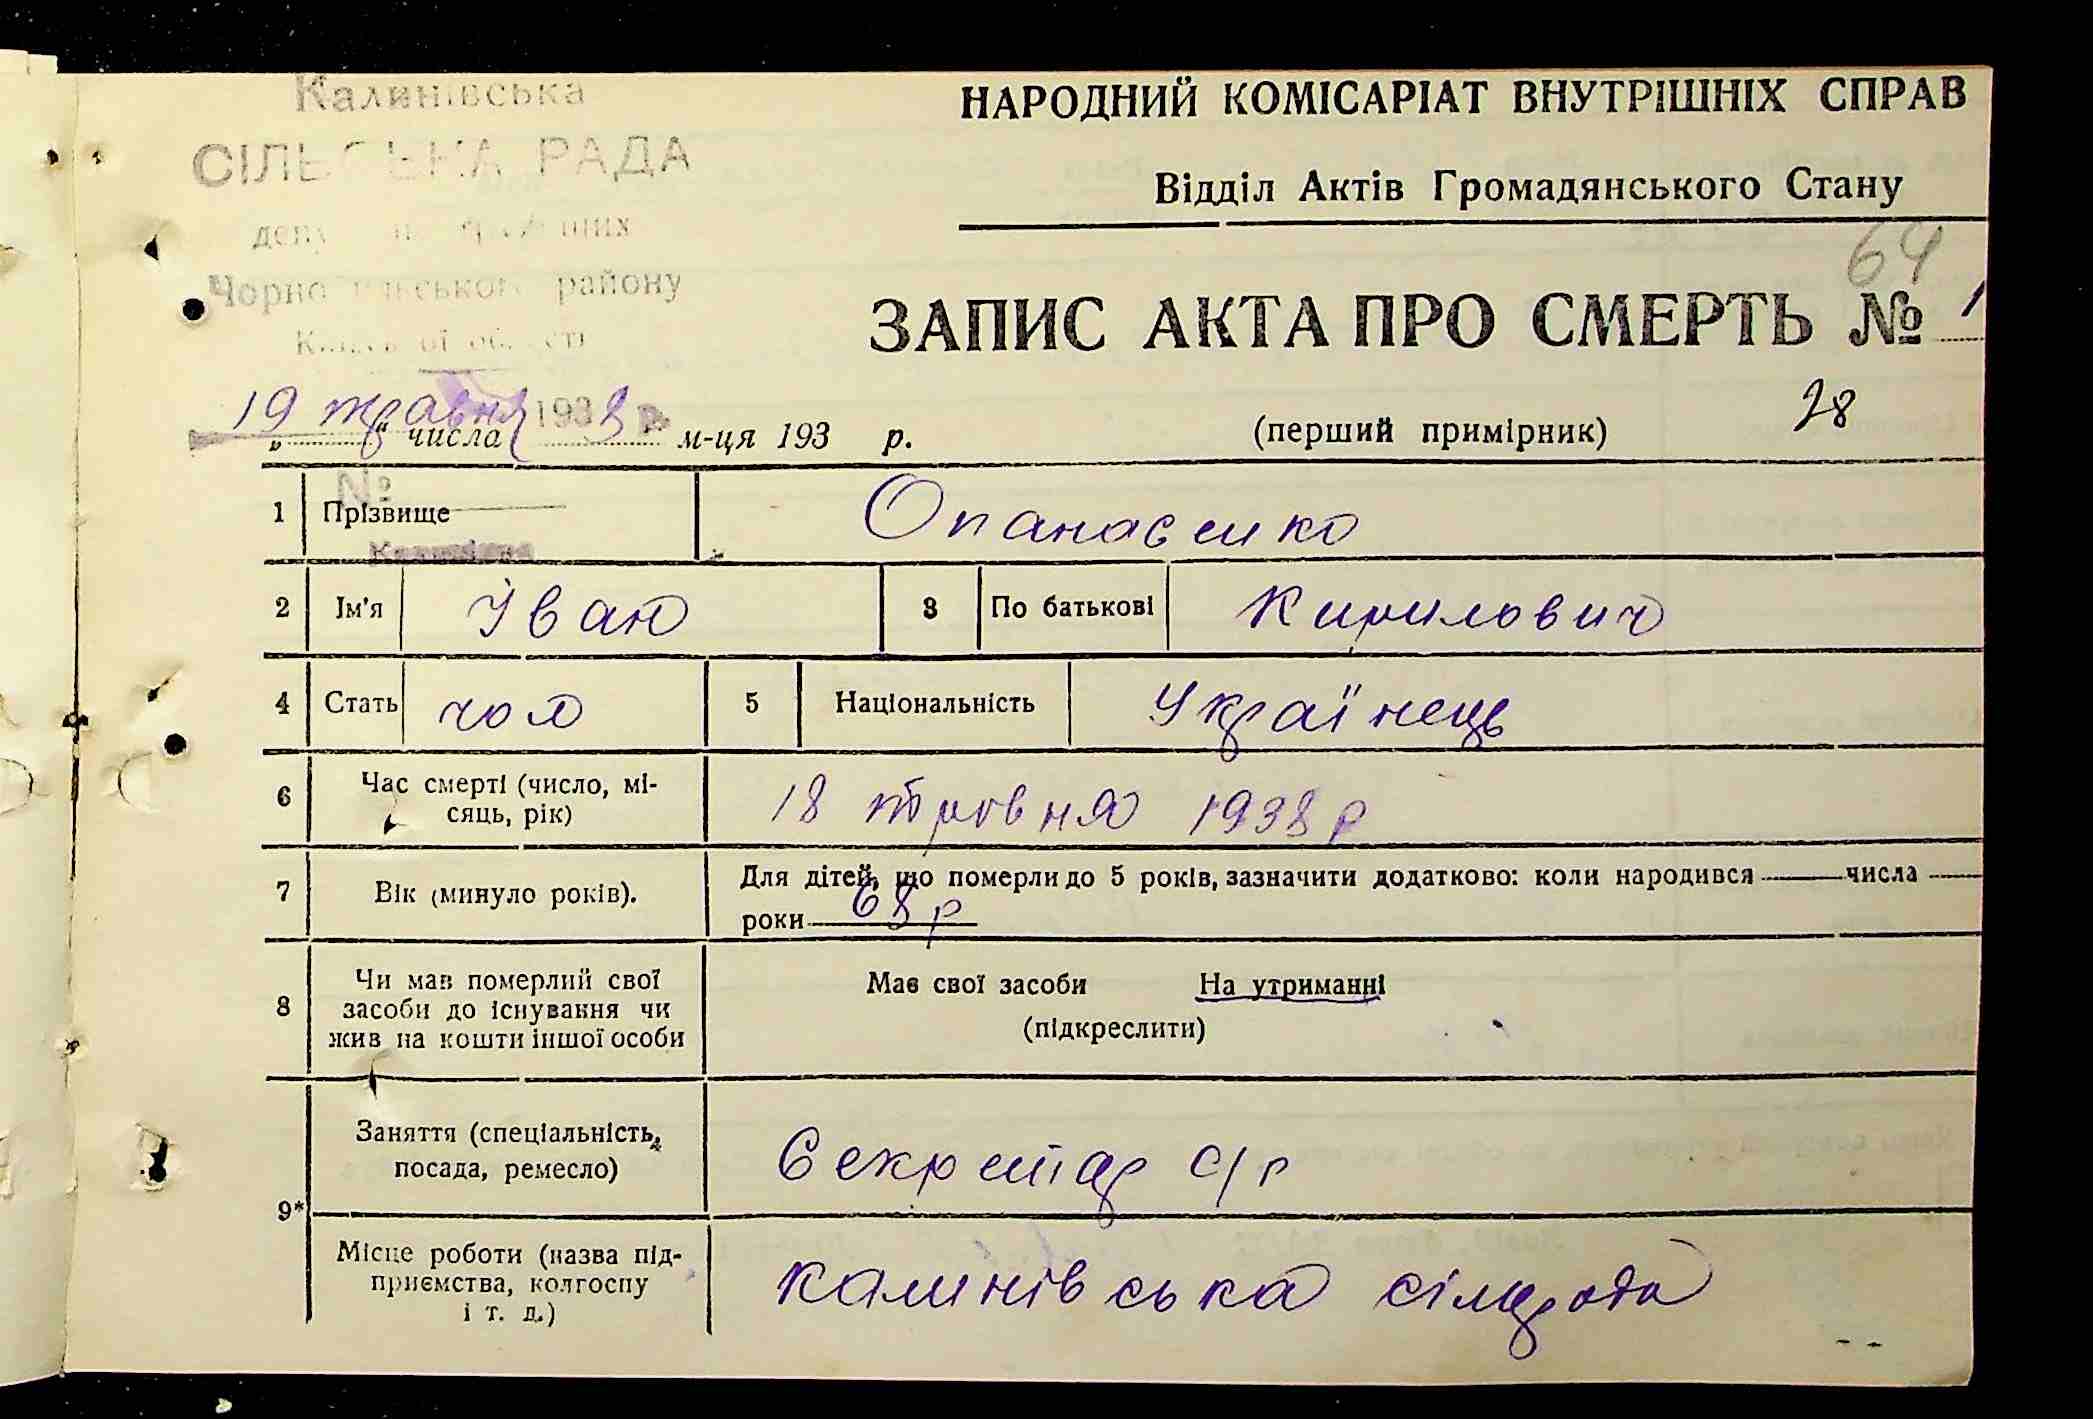 Калинівська
СІЛЬСЬКА РАДА
району
НАРОДНИЙ КОМІСАРІАТ ВНУТРІШНІХ СПРАВ
Відділ Актів Громадянського Стану
64
ЗАПИС АКТА ПРО СМЕРТЬ № 1
19 травня 1938 р.
„ “ числа м-ця 193 р.
(перший примірник)
28
№
1 Прізвище Опанасенко
2 Ім'я Іван 3 По батькові Кирилович
4 Стать чол 5 Національність Українець
6 Час смерті (число, мі-
сяць, рік) 18 травня 1938 р
7 Вік (минуло років). Для дітей, що померли до 5 років, зазначити додатково: коли народився числа
роки 68 р
8 Чи мав померлий свої
засоби до існування чи
жив на кошти іншої особи
Має свої засоби На утриманні
(підкреслити)
9* Заняття (спеціальність,
посада, ремесло) Секретар с/р
Місце роботи (назва під-
приємства, колгоспу
і т. д.) Калинівська сілрада